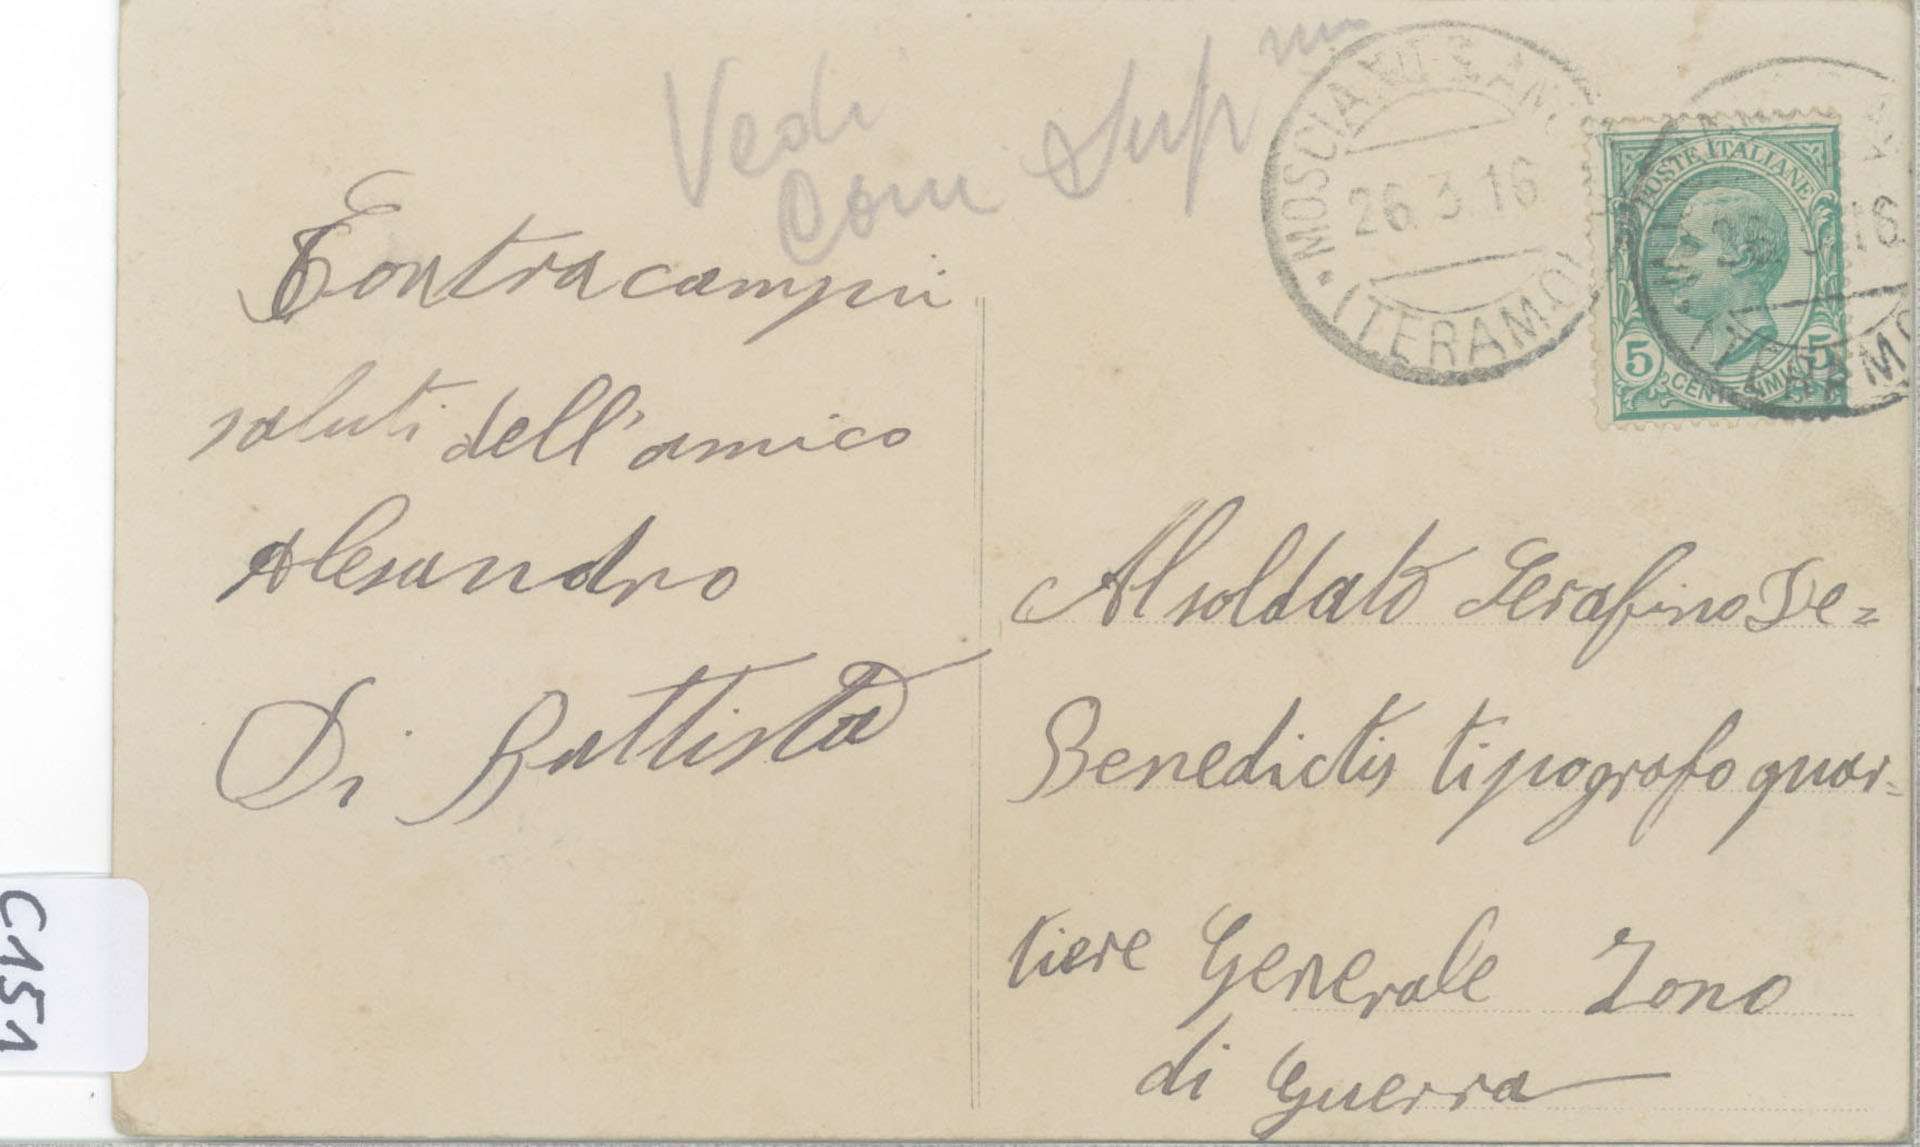 Vedi
Com Sup
MOSCIANO S. ANG
26.3.16
(TERAMO)
POSTE ITALIANE
5 CENTESIMI 5
16
Contracampii
saluti dell'amico
Alesandro
Di Battista
Al soldato Serafino De=
Benedictis tipografo quar-
tiere Generale Zona
di Guerra
C151